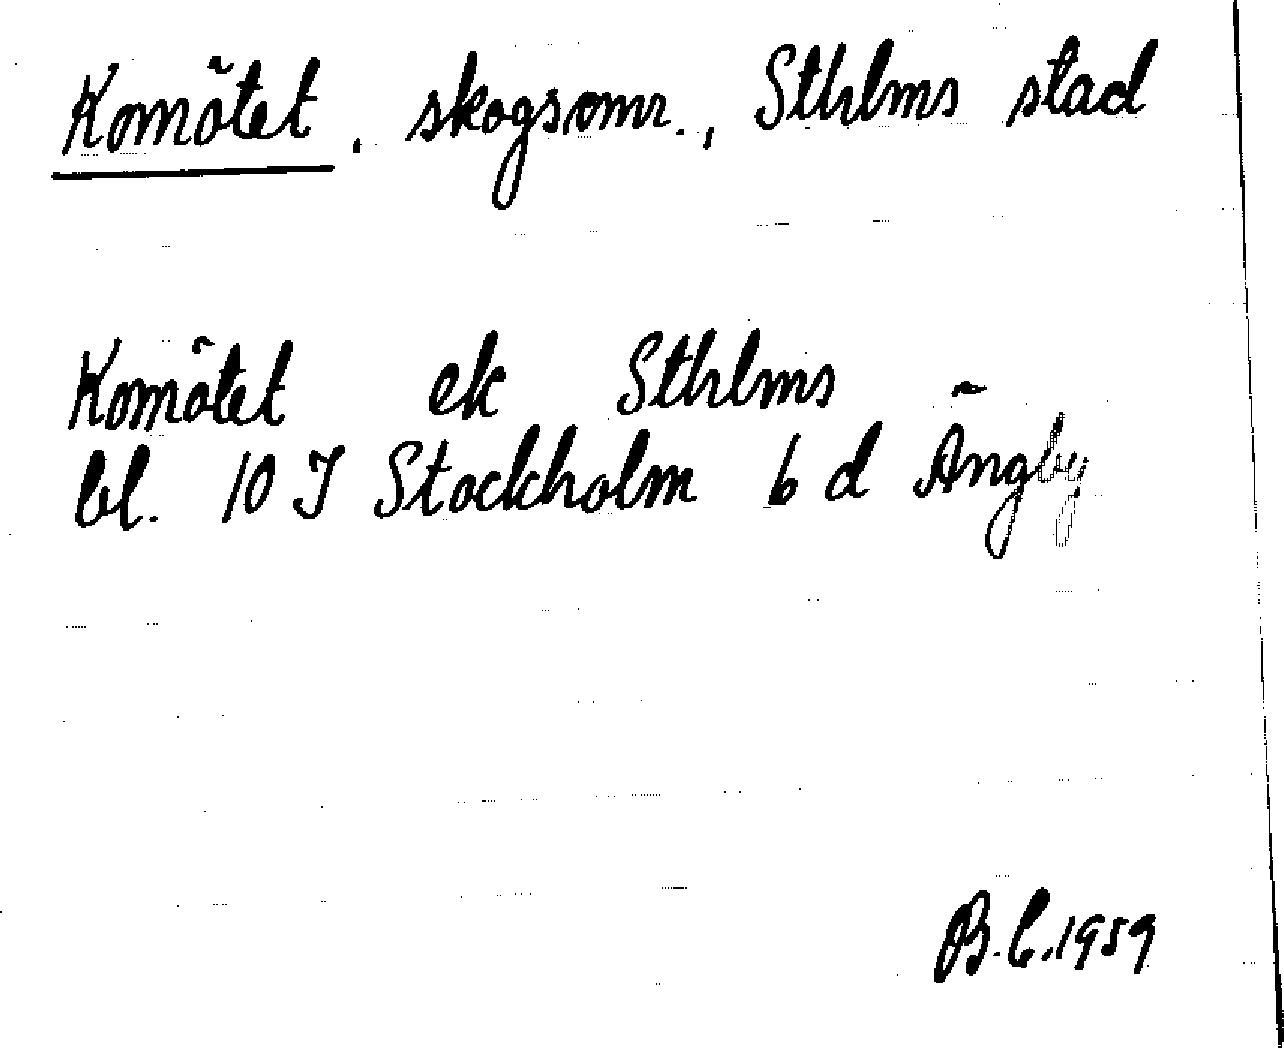 Komötet, skogsomr., Sthlms stad
Komötet ek Sthlms
bl. 10 I Stockholm 6 d Ängby
B.C. 1959